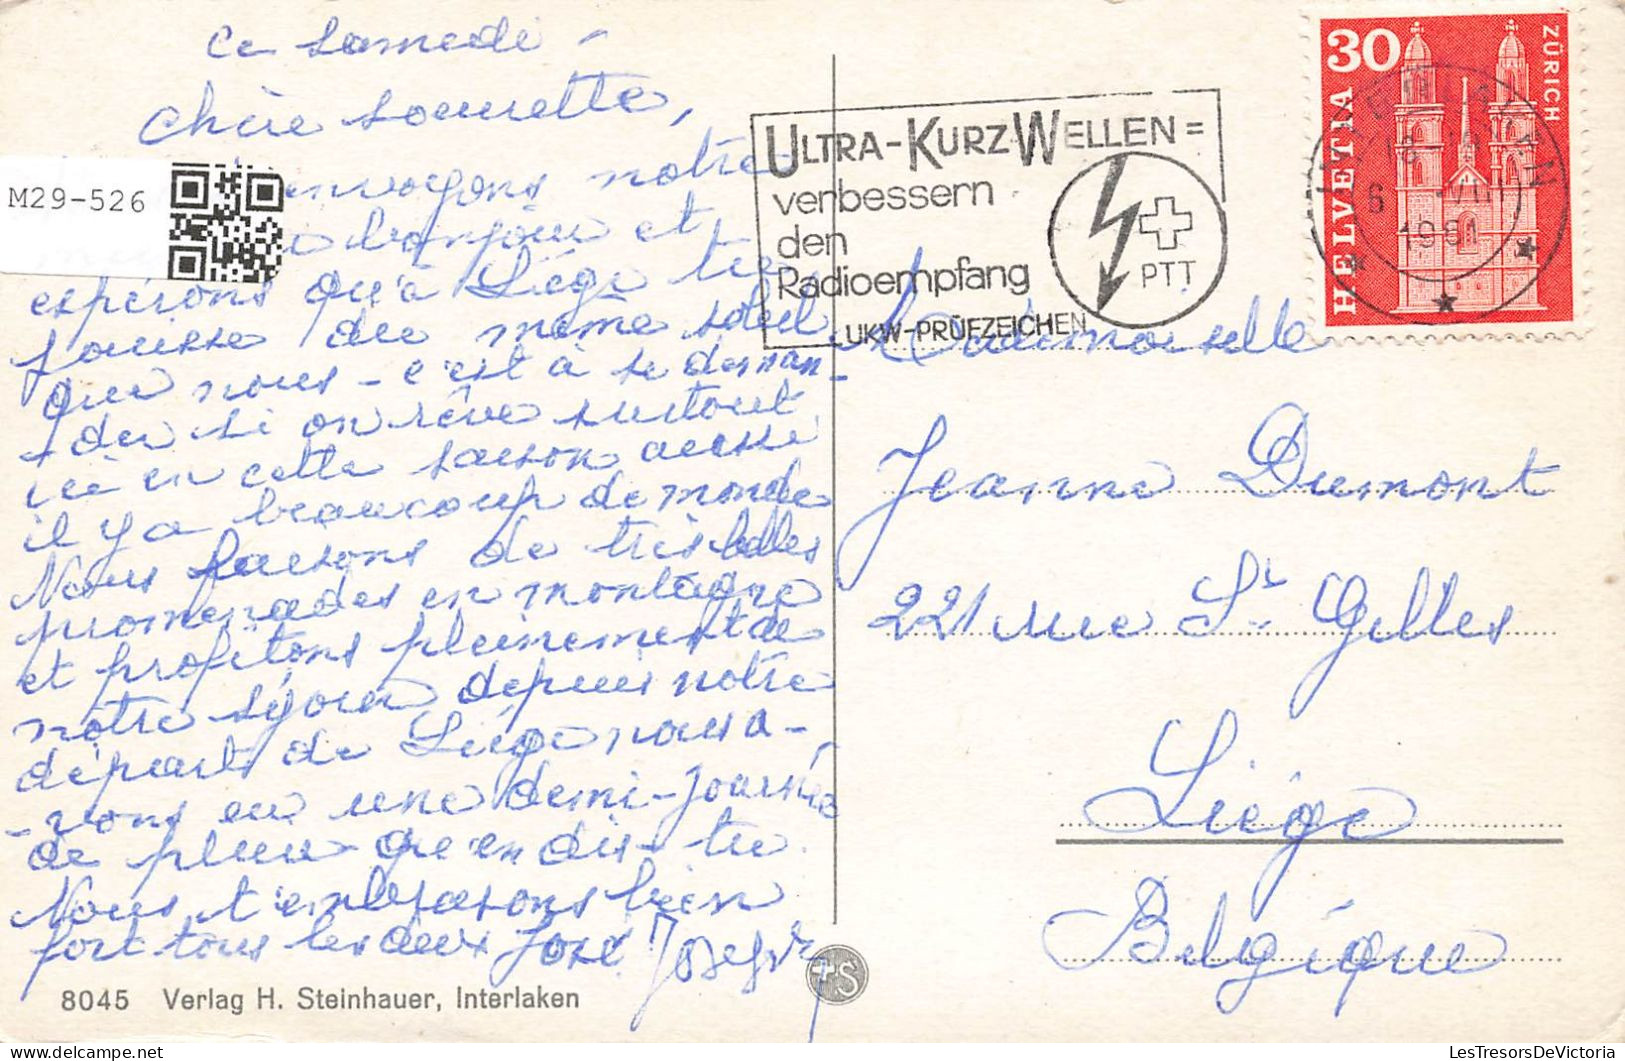 ce samedi -
chère soeurette,
envoyons notre
bonjour et
espérons qu'à Liége tu
jouisse du même soleil
que nous - c'est à se deman-
-der si on rêve surtout
ici en cette saison aussi
il y a beaucoup de monde
Nous faisons de très belles
promenades en montagne
et profitons pleinement de
notre séjour depuis notre
départ de Liége nous a-
-vons eu une demi-journée
de pluie qu'en dis-tu
Nous t'embrassons bien
fort tous les deux José Joseph
8045 Verlag H. Steinhauer, Interlaken
M29-526
ULTRA-KURZ-WELLEN=
verbessern
den
Radioempfang
UKW-PRÜFZEICHEN
PTT
30
HELVETIA
ZÜRICH
INTERLAKEN
6 VIII
1961
Mademoiselle
Jeanne Dumont
221 rue St Gilles
Liége
Belgique
+S
www.LesTresorsDeVictoria.com